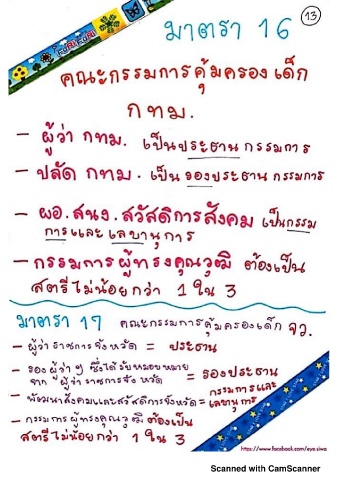 13
มาตรา 16
คณะกรรมการคุ้มครองเด็ก
กทม.
- ผู้ว่า กทม. เป็นประธานกรรมการ
- ปลัด กทม. เป็นรองประธานกรรมการ
- ผอ.สนง.สวัสดิการสังคม เป็นกรรม
การและเลขานุการ
- กรรมการผู้ทรงคุณวุฒิ ต้องเป็น
สตรีไม่น้อยกว่า 1 ใน 3
มาตรา 17 คณะกรรมการคุ้มครองเด็ก จว.
- ผู้ว่าราชการจังหวัด = ประธาน
- รองผู้ว่าฯ ซึ่งได้รับมอบหมาย
จาก ผู้ว่าราชการจังหวัด = รองประธาน
- พัฒนาสังคมและสวัสดิการจังหวัด = กรรมการและ
เลขานุการ
- กรรมการผู้ทรงคุณวุฒิ ต้องเป็น
สตรีไม่น้อยกว่า 1 ใน 3
https://www.facebook.com/eye.siwa
Scanned with CamScanner